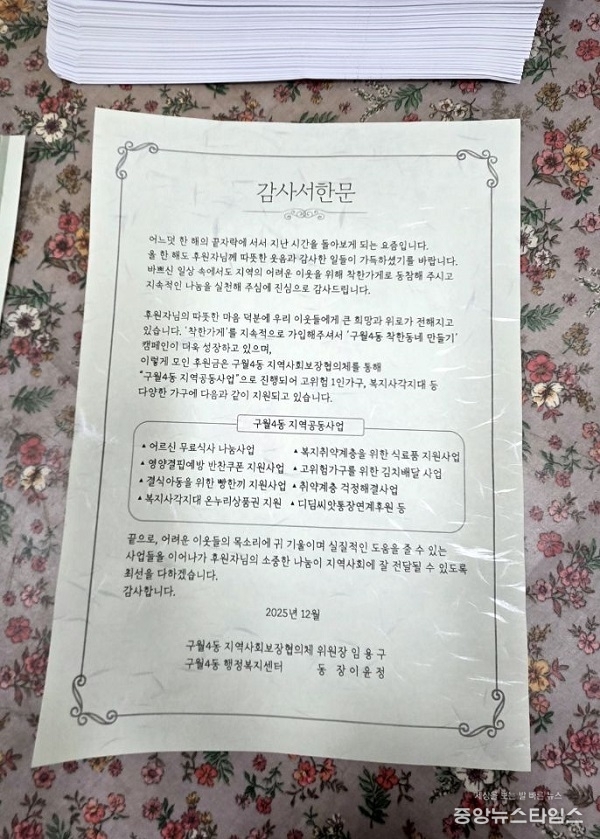 감사서한문
어느덧 한 해의 끝자락에 서서 지난 시간을 돌아보게 되는 요즘입니다.
올 한해도 후원자님께 따뜻한 웃음과 감사한 일들이 가득하셨기를 바랍니다.
바쁘신 일상 속에서도 지역의 어려운 이웃을 위해 착한가게로 동참해 주시고
지속적인 나눔을 실천해 주심에 진심으로 감사드립니다.
후원자님의 따뜻한 마음 덕분에 우리 이웃들에게 큰 희망과 위로가 전해지고
있습니다. '착한가게'를 지속적으로 가입해주셔서 '구월4동 착한동네 만들기'
캠페인이 더욱 성장하고 있으며,
이렇게 모인 후원금은 구월4동 지역사회보장협의체를 통해
"구월4동 지역공동사업"으로 진행되어 고위험 1인가구, 복지사각지대 등
다양한 가구에 다음과 같이 지원되고 있습니다.
구월4동 지역공동사업
▲ 어르신 무료식사 나눔사업 ▲ 복지취약계층을 위한 식료품 지원사업
▲ 영양결핍예방 반찬쿠폰 지원사업 ▲ 고위험가구를 위한 김치배달 사업
▲ 결식아동을 위한 빵한끼 지원사업 ▲ 취약계층 걱정해결사업
▲ 복지사각지대 온누리상품권 지원 ▲ 디딤씨앗통장연계후원 등
끝으로, 어려운 이웃들의 목소리에 귀 기울이며 실질적인 도움을 줄 수 있는
사업들을 이어나가 후원자님의 소중한 나눔이 지역사회에 잘 전달될 수 있도록
최선을 다하겠습니다.
감사합니다.
2025년 12월
구월4동 지역사회보장협의체 위원장 임용구
구월4동 행정복지센터 동 장 이윤정
세상을 보는 발 빠른 뉴스
중앙뉴스타임스